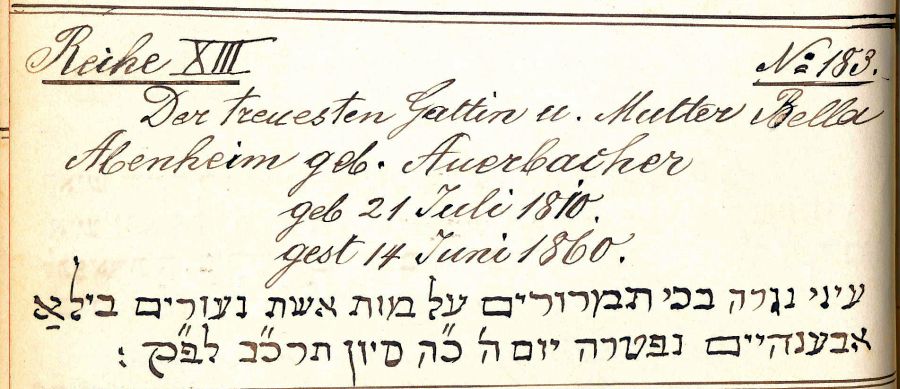 Reihe XIII
№ 183.
Der treuesten Gattin u. Mutter Bella
Abenheim geb. Auerbacher
geb 21 Juli 1810.
gest 14 Juni 1860.
עיני נגרה בכי תמרורים על מות אשת נעורים בילא
אבענהיים נפטרה יום ה' כ"ה סיון תר"כ לפ"ק :